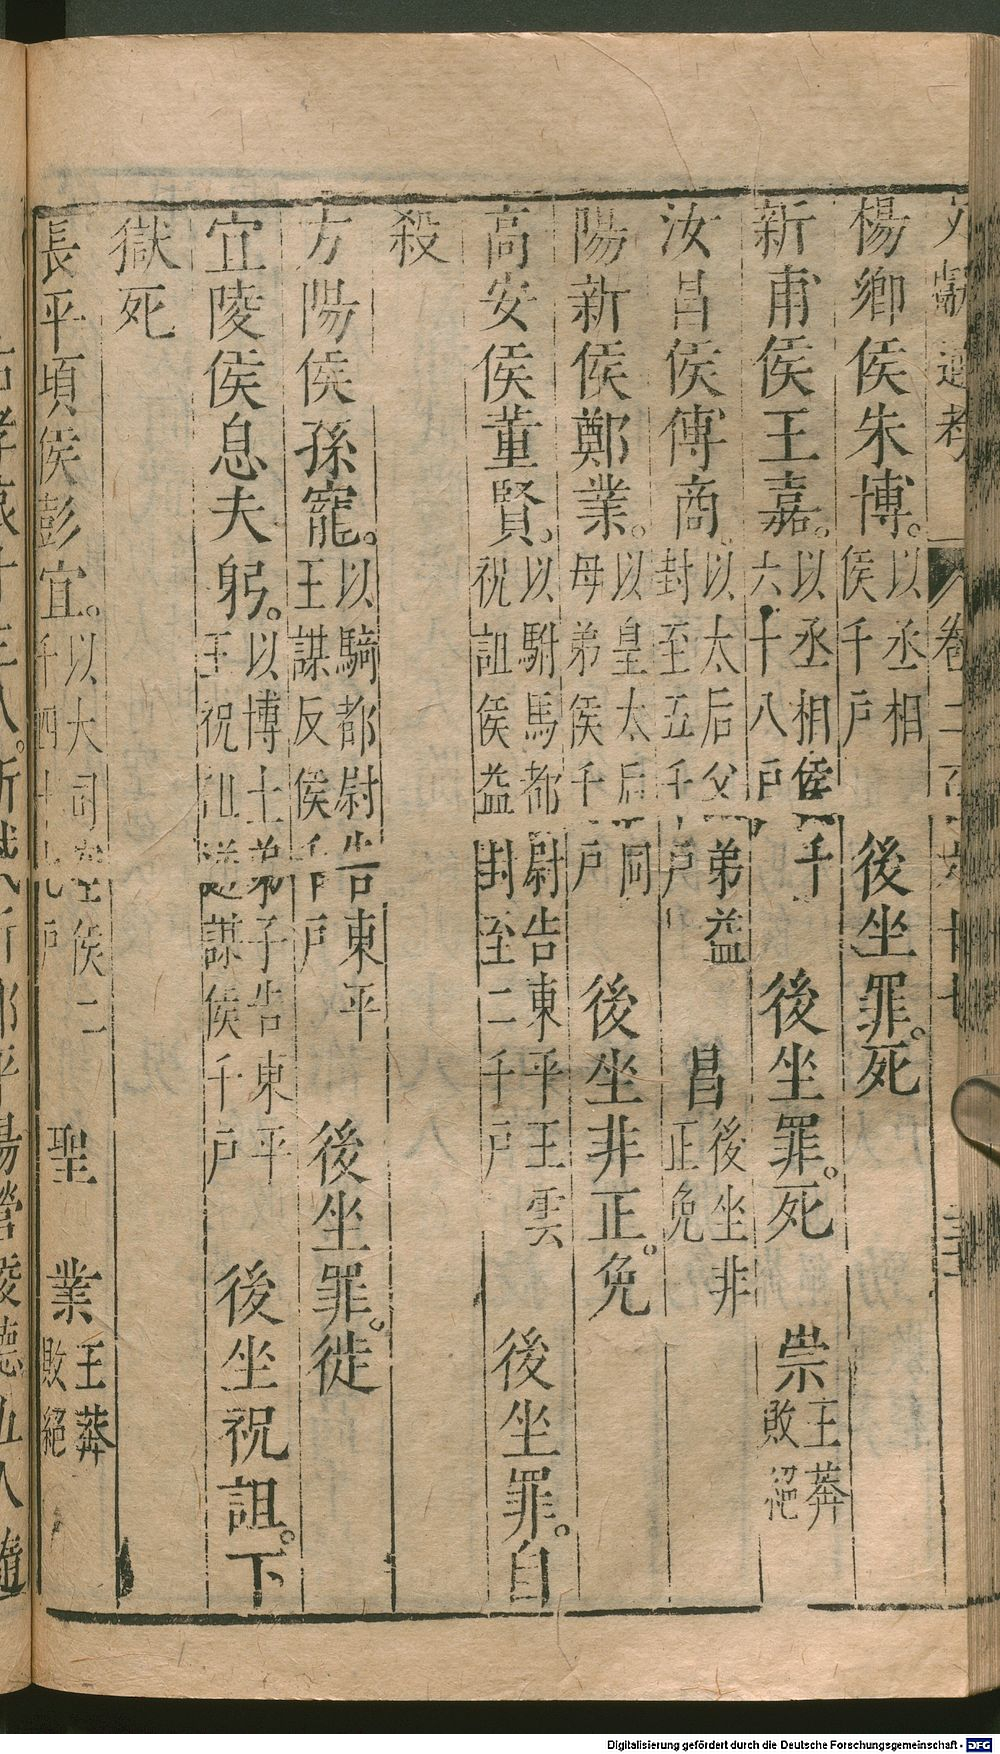 文獻通考 卷二百六十七
楊鄉侯朱博。以丞相侯千戶 後坐罪。死
新甫侯王嘉。以丞相侯千六十八戶 後坐罪。死 崇王莽敗絕
汝昌侯傅商。以太后父弟益封至五千戶 昌後坐非正免
陽新侯鄭業。以皇太后同母弟侯千戶 後坐非正。免
高安侯董賢。以駙馬都尉告東平王雲祝詛侯益封至二千戶 後坐罪。自
殺
方陽侯孫寵。以騎都尉告東平王謀反侯千戶 後坐罪。徙
宜陵侯息夫躬。以博士弟子告東平王祝詛謀侯千戶 後坐祝詛。下
獄死
長平頃侯彭宣。以大司空侯二千四十七戶 聖 業王莽敗絕
Digitalisierung gefördert durch die Deutsche Forschungsgemeinschaft - DFG